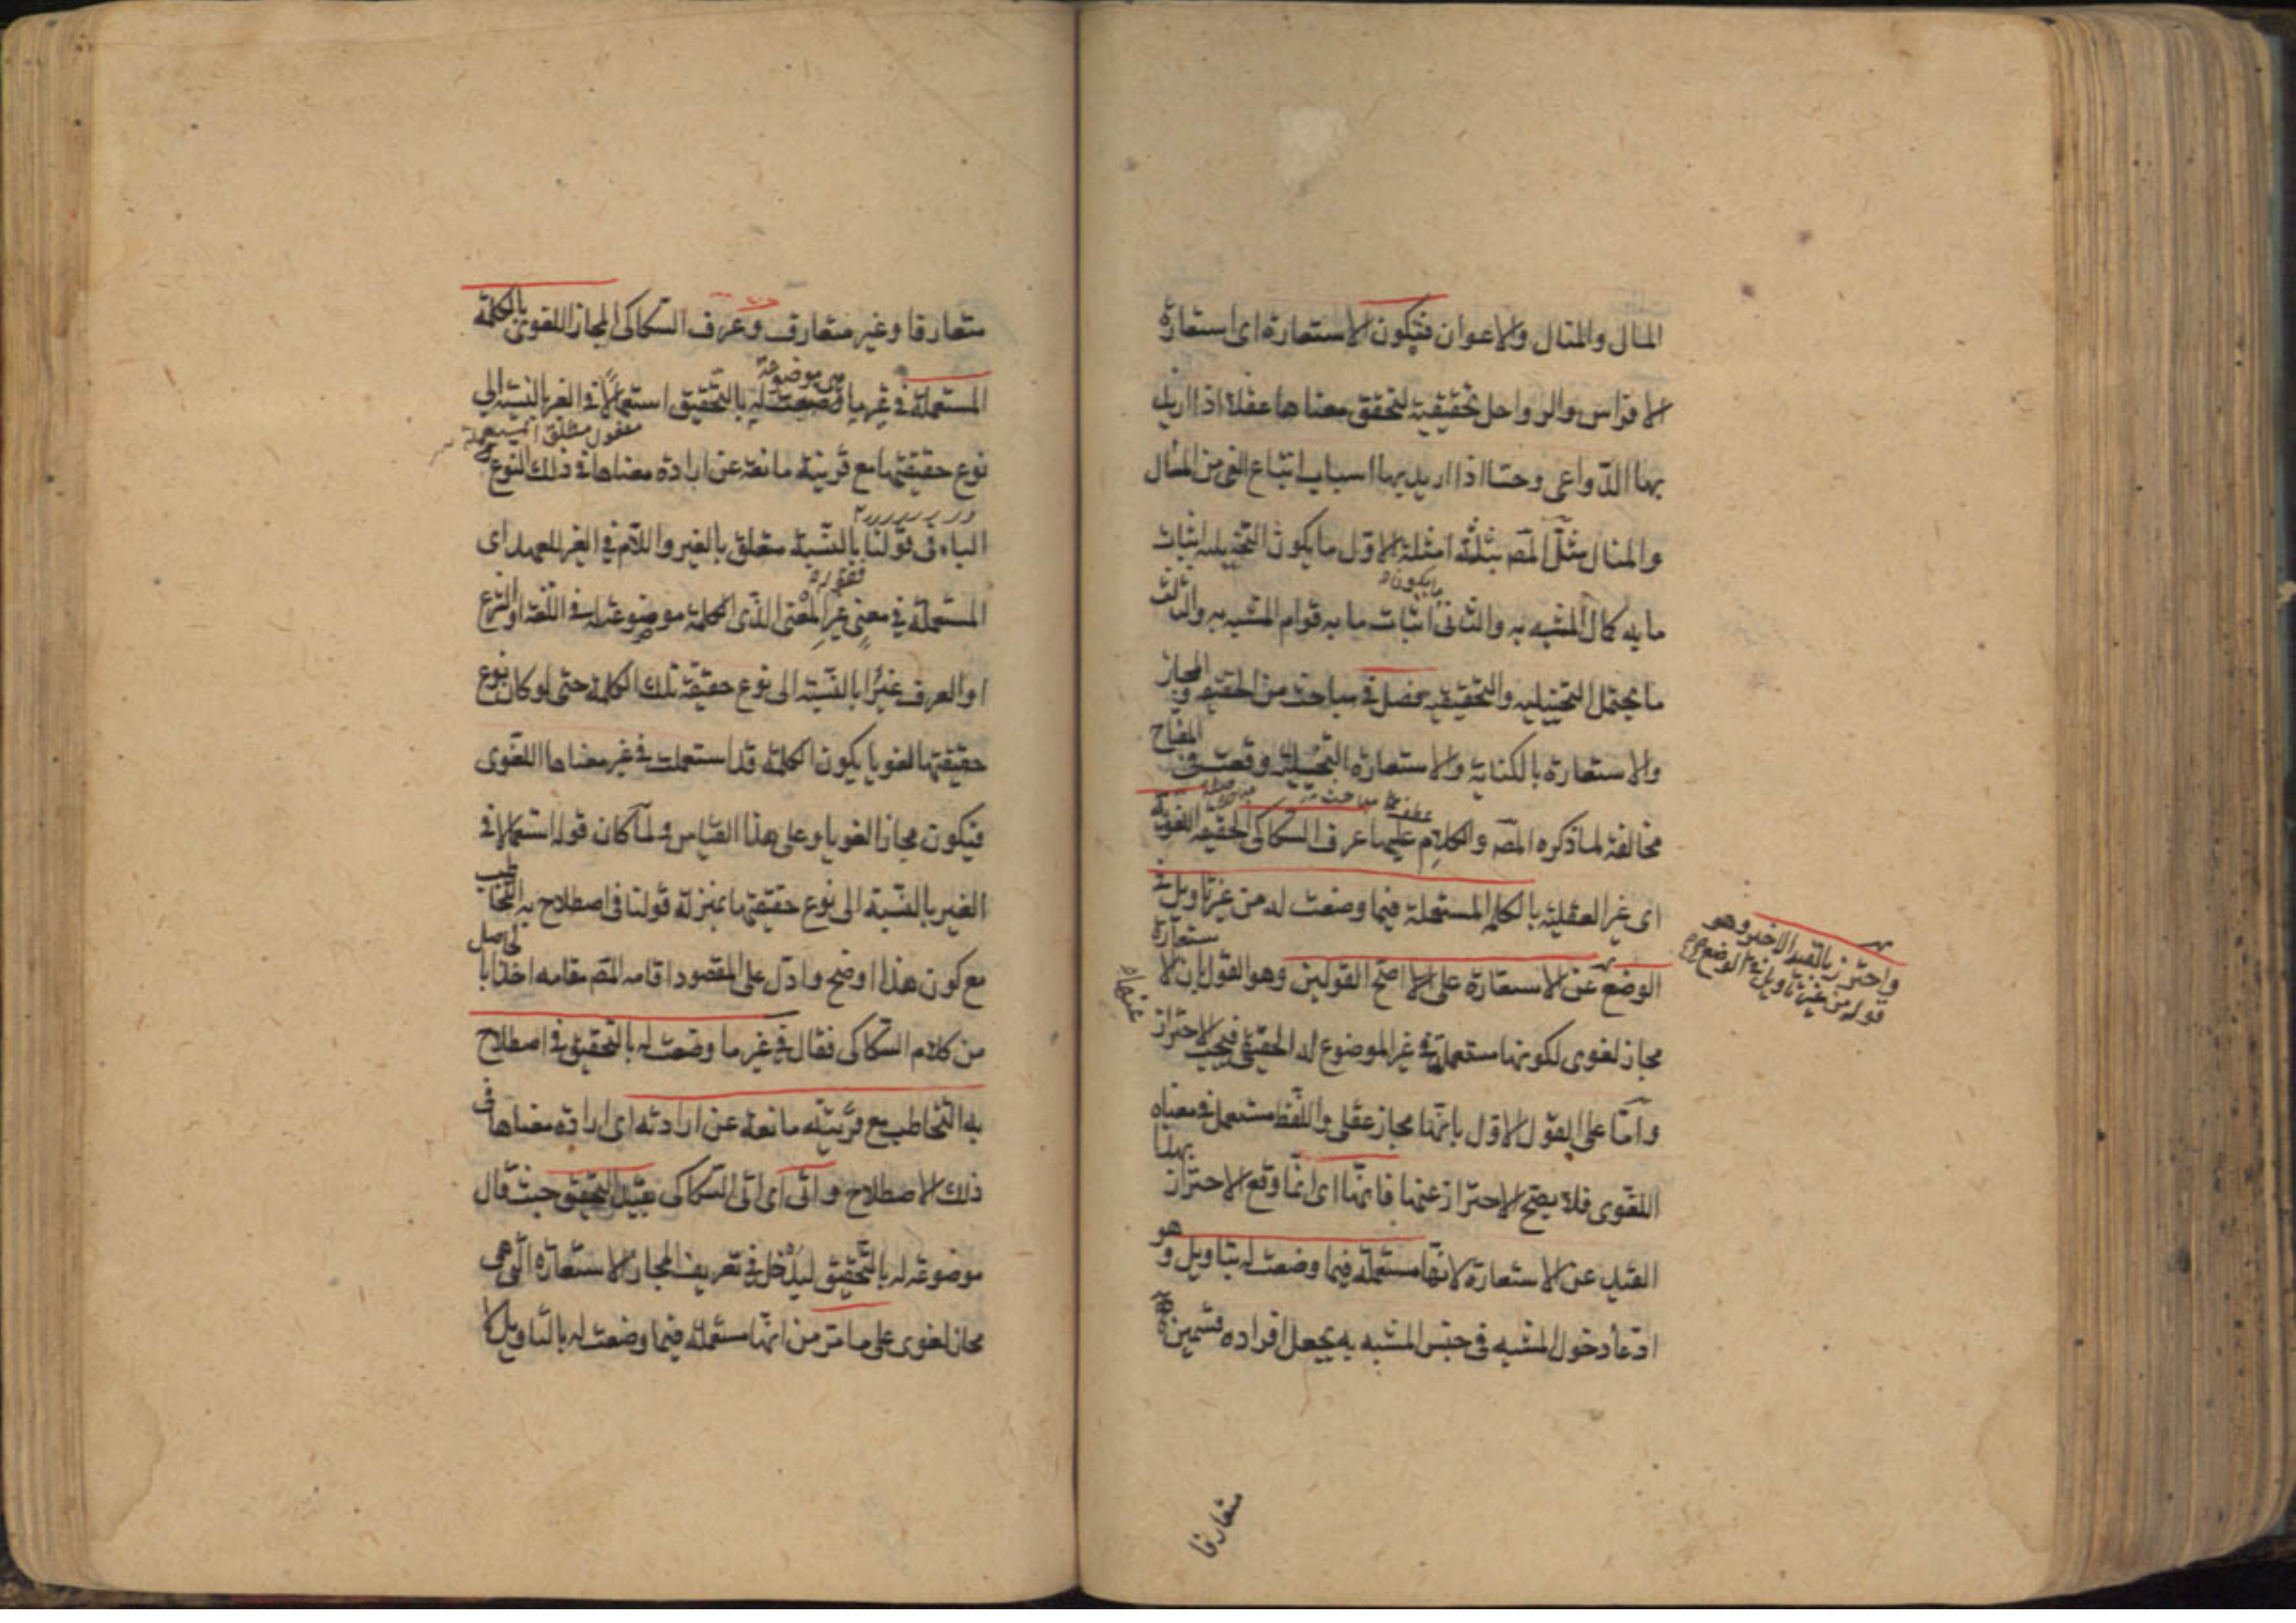 المال والمنال والاعوان فتكون الاستعارة اى استعارة
الافراس والرواحل تحقيقية لتحقق معناها عقلا اذا اريد
بها الدّواعى وحسّا اذا اريد بها اسباب اتباع الغى من المال
والمنال مثّل المصّ بثلثة امثلة الاول ما يكون التخييلية اثبات
ما يكون
ما به كمال المشبه به والثانى اثبات ما به قوام المشبه به والثالث
ما يحتمل التخييلية والتحقيقية فصل فى مباحث من الحقيقة والمجاز
والاستعارة بالكناية والاستعارة التخييلية وقعت فى المفتاح
مخالفة لما ذكره المصّ والكلام عليها عرف السكاكى الحقيقة اللغوية
اى غير العقلية بالكلمة المستعملة فيما وضعت له من غير تاويل فى
واحترز بالقيد الاخير وهو
قوله من غير تاويل فى الوضع
الوضع عن الاستعارة على الاصح القولين وهو القول بان الاستعارة
مجاز لغوى لكونها مستعملة فى غير الموضوع له الحقيقى فيجب الاحتراز
عنها
وامّا على القول الاول بانّها مجاز عقلى واللفظ مستعمل فى معناه
اللغوى فلا يصح الاحتراز عنها فانّها اى انّما وقع الاحتراز بهذا
القيد عن الاستعارة لانّها مستعملة فيما وضعت له بتاويل وهو
ادعاء دخول المشبه فى جنس المشبه به بجعل افراده قسمين
متعارفا
متعارفا وغير متعارف وعرف السكاكى المجاز اللغوى بالكلمة
هى موضوعة
المستعملة فى غير ما وضعت له بالتّحقيق استعمالا فى الغير بالنسبة الى
مفعول مطلق المستعملة
نوع حقيقتها مع قرينة مانعة عن ارادة معناها فى ذلك النوع
الباء فى قولنا بالنّسبة متعلق بالغير واللّام فى الغير للعهد اى
المستعملة فى معنى غير المعنى الذى الكلمة موضوعة له فى اللغة او الشرع
او العرف غيرًا بالنّسبة الى نوع حقيقة تلك الكلمة حتى لو كان نوع
حقيقتها لغويا يكون الكلمة قد استعملت فى غير معناها اللغوى
فيكون مجازا لغويا وعلى هذا القياس ولمّا كان قوله استعمالا فى
الغير بالنّسبة الى نوع حقيقتها بمنزلة قولنا فى اصطلاح به التخاطب
مع كون هذا اوضح وادّل على المقصود اقامه المصّ مقامه اخذا بالحاصل
من كلام السّكاكى فقال فى غير ما وضعت له بالتحقيق فى اصطلاح
به التخاطب مع قرينة مانعة عن ارادته اى ارادة معناها فى
ذلك الاصطلاح واتى اى اتى السّكاكى بقيد التحقيق حيث قال
موضوعة له بالتّحقيق ليدخل فى تعريف المجاز الاستعارة التى هى
مجاز لغوى على ما مر من انّها مستعملة فيما وضعت له بالتاويل لا